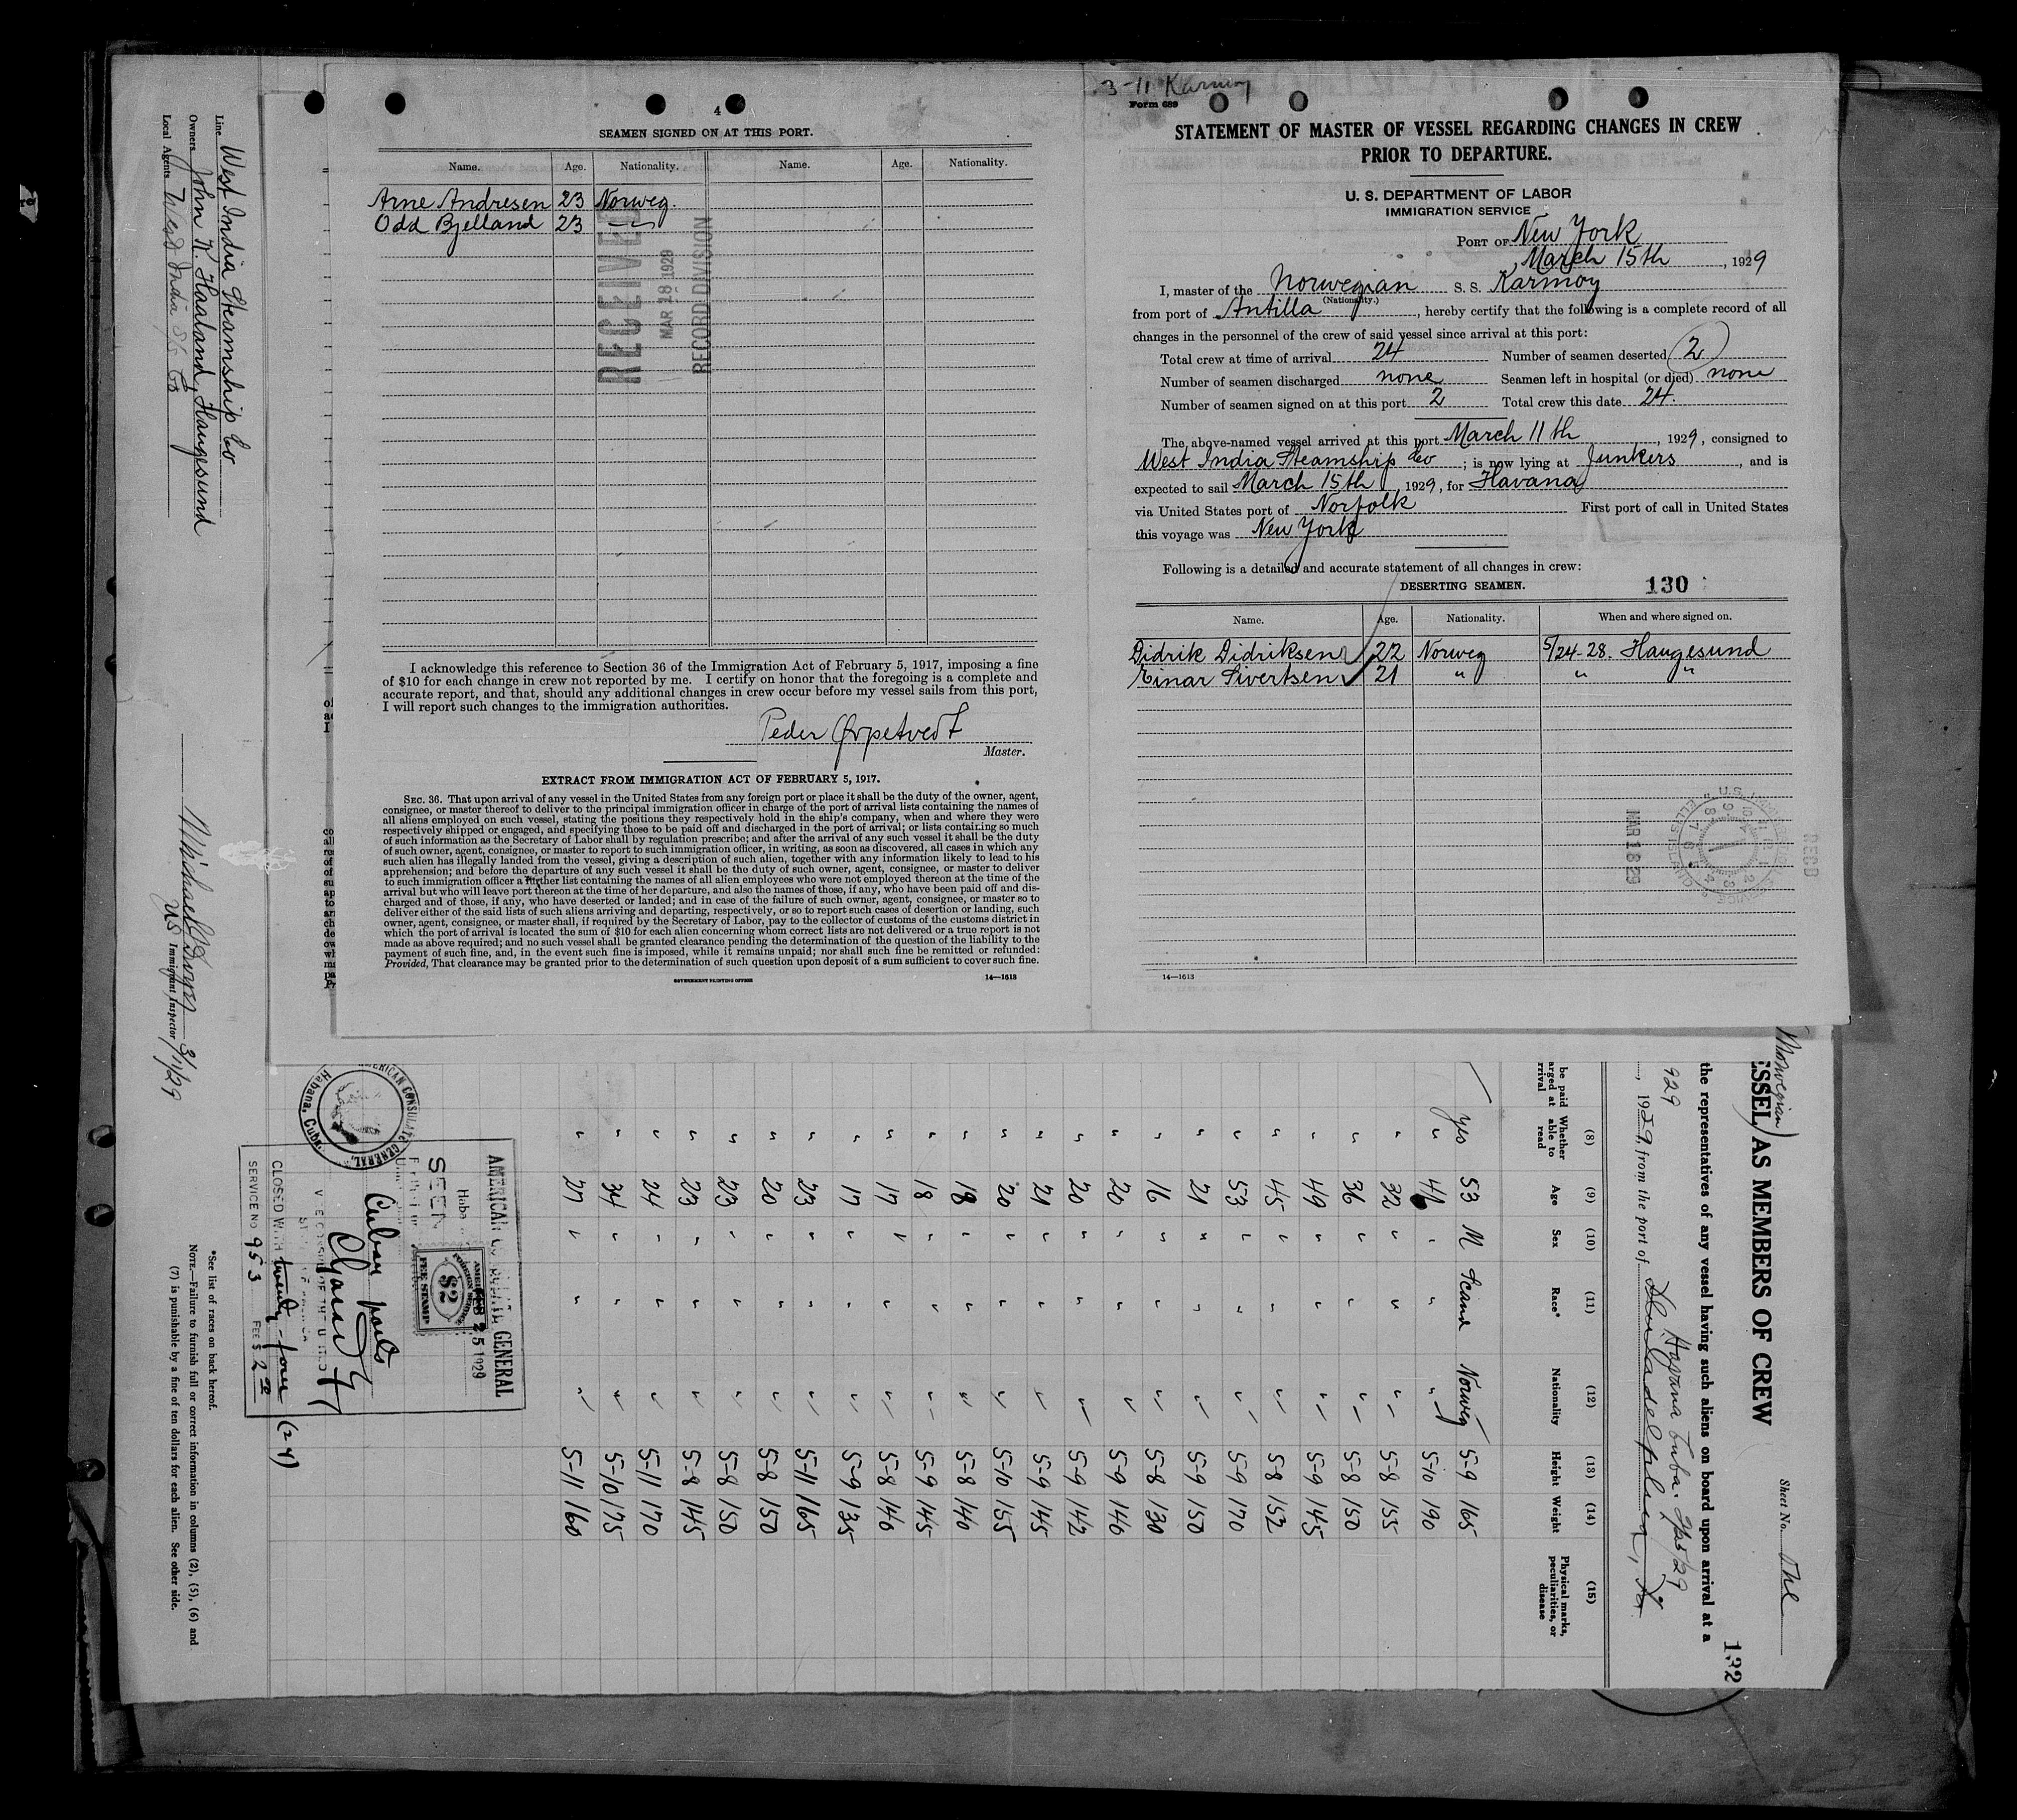 4
SEAMEN SIGNED ON AT THIS PORT.
Name. Age. Nationality. Name. Age. Nationality.
Arne Andresen 23 Norweg.
Odd Bjelland 23 "
RECEIVED
MAR 18 1929
RECORD DIVISION
I acknowledge this reference to Section 36 of the Immigration Act of February 5, 1917, imposing a fine
of $10 for each change in crew not reported by me. I certify on honor that the foregoing is a complete and
accurate report, and that, should any additional changes in crew occur before my vessel sails from this port,
I will report such changes to the immigration authorities.
Peder
Master.
EXTRACT FROM IMMIGRATION ACT OF FEBRUARY 5, 1917.
SEC. 36. That upon arrival of any vessel in the United States from any foreign port or place it shall be the duty of the owner, agent,
consignee, or master thereof to deliver to the principal immigration officer in charge of the port of arrival lists containing the names of
all aliens employed on such vessel, stating the positions they respectively hold in the ship's company, when and where they were
respectively shipped or engaged, and specifying those to be paid off and discharged in the port of arrival; or lists containing so much
of such information as the Secretary of Labor shall by regulation prescribe; and after the arrival of any such vessel it shall be the duty
of such owner, agent, consignee, or master to report to such immigration officer, in writing, as soon as discovered, all cases in which any
such alien has illegally landed from the vessel, giving a description of such alien, together with any information likely to lead to his
apprehension; and before the departure of any such vessel it shall be the duty of such owner, agent, consignee, or master to deliver
to such immigration officer a further list containing the names of all alien employees who were not employed thereon at the time of the
arrival but who will leave port thereon at the time of her departure, and also the names of those, if any, who have been paid off and dis-
charged and of those, if any, who have deserted or landed; and in case of the failure of such owner, agent, consignee, or master so to
deliver either of the said lists of such aliens arriving and departing, respectively, or so to report such cases of desertion or landing, such
owner, agent, consignee, or master shall, if required by the Secretary of Labor, pay to the collector of customs of the customs district in
which the port of arrival is located the sum of $10 for each alien concerning whom correct lists are not delivered or a true report is not
made as above required; and no such vessel shall be granted clearance pending the determination of the question of the liability to the
payment of such fine, and, in the event such fine is imposed, while it remains unpaid; nor shall such fine be remitted or refunded:
Provided, That clearance may be granted prior to the determination of such question upon deposit of a sum sufficient to cover such fine.
GOVERNMENT PRINTING OFFICE 14—1613
3-11 Karmoy
Form 689
STATEMENT OF MASTER OF VESSEL REGARDING CHANGES IN CREW
PRIOR TO DEPARTURE.
U. S. DEPARTMENT OF LABOR
IMMIGRATION SERVICE
PORT OF New York
March 15th, 1929
I, master of the Norwegian S. S. Karmoy
(Nationality.)
from port of Antilla, hereby certify that the following is a complete record of all
changes in the personnel of the crew of said vessel since arrival at this port:
Total crew at time of arrival 24 Number of seamen deserted 2
Number of seamen discharged none Seamen left in hospital (or died) none
Number of seamen signed on at this port 2 Total crew this date 24.
The above-named vessel arrived at this port March 11th, 1929, consigned to
West India Steamship Co; is now lying at Junkers, and is
expected to sail March 15th, 1929, for Havana
via United States port of Norfolk First port of call in United States
this voyage was New York
Following is a detailed and accurate statement of all changes in crew:
DESERTING SEAMEN. 130
Name. Age. Nationality. When and where signed on.
Didrik Didriksen 22 Norweg 5/24-28. Haugesund
Einar Sivertsen 21 " " "
MAR 18 29
REC'D
14—1613
Line West India Steamship Co
Owners John K. Haaland, Haugesund
Local Agents West India S/S Co
3/11/29
US Immigrant Inspector
Norwegian
Sheet No. One
132
ESSEL) AS MEMBERS OF CREW
the representatives of any vessel having such aliens on board upon arrival at a
929 Havana Cuba.
, 1929, from the port of
(8) (9) (10) (11) (12) (13) (14) (15)
be paid
arged at
rrival
Whether
able to
read
Age Sex Race* Nationality Height Weight Physical marks,
peculiarities, or
disease
yes 53 M Scand Norweg 5-9 165
" 41 " " " 5-10 190
" 32 " " " 5-8 155
" 36 " " " 5-8 150
" 49 " " " 5-9 145
" 45 " " " 5-8 152
" 53 " " " 5-9 170
" 21 " " " 5-9 150
" 16 " " " 5-8 130
" 20 " " " 5-9 140
" 20 " " " 5-9 142
" 21 " " " 5-9 145
" 20 " " " 5-10 155
" 18 " " " 5-8 140
" 18 " " " 5-9 145
" 17 " " " 5-8 140
" 17 " " " 5-9 135
" 23 " " " 5-11 165
" 20 " " " 5-8 150
" 23 " " " 5-8 150
" 23 " " " 5-8 145
" 24 " " " 5-11 170
" 34 " " " 5-10 175
" 27 " " " 5-11 160
AMERICAN CONSULATE GENERAL
25 1929
SEEN
Cuban ports
$2
FEE STAMP
CLOSED WITH twenty-four (24)
SERVICE No 953 FEE $ 2
AMERICAN CONSULATE GENERAL,
Habana, Cuba.
*See list of races on back hereof.
NOTE.—Failure to furnish full or correct information in columns (2), (5), (6) and
(7) is punishable by a fine of ten dollars for each alien. See other side.